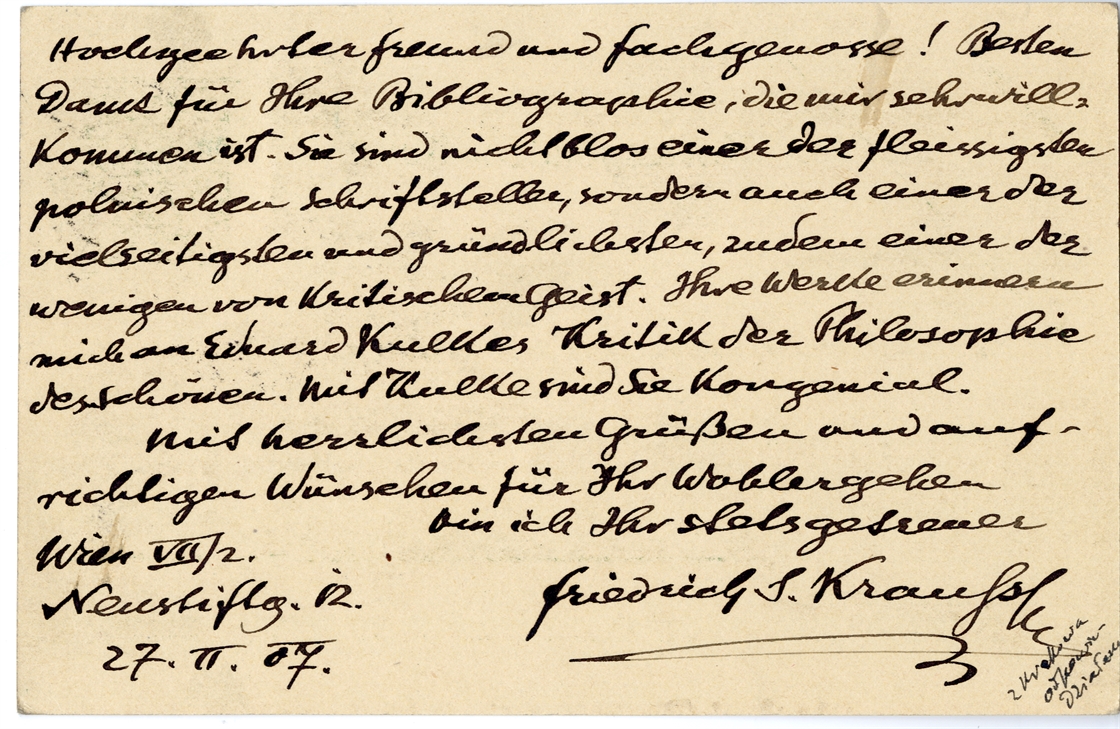 Hochgeehrter Freund und Fachgenosse! Besten
Dank für Ihre Bibliographie, die mir sehr will-
kommen ist. Sie sind nicht blos einer der fleissigsten
polnischen Schriftsteller, sondern auch einer der
vielseitigsten und gründlichsten, zudem einer der
wenigen von kritischem Geist. Ihre Werke erinnern
mich an Eduard Kulkes Kritik der Philosophie
des Schönen. Mit Kulke sind Sie kongenial.
Mit herzlichsten Grüßen und auf-
richtigen Wünschen für Ihr Wohlergehen
bin ich Ihr stets getreuer
Wien VII/2.
Neustiftg. 12.
Friedrich S. Krauss
27. II. 07.
z Krakowa